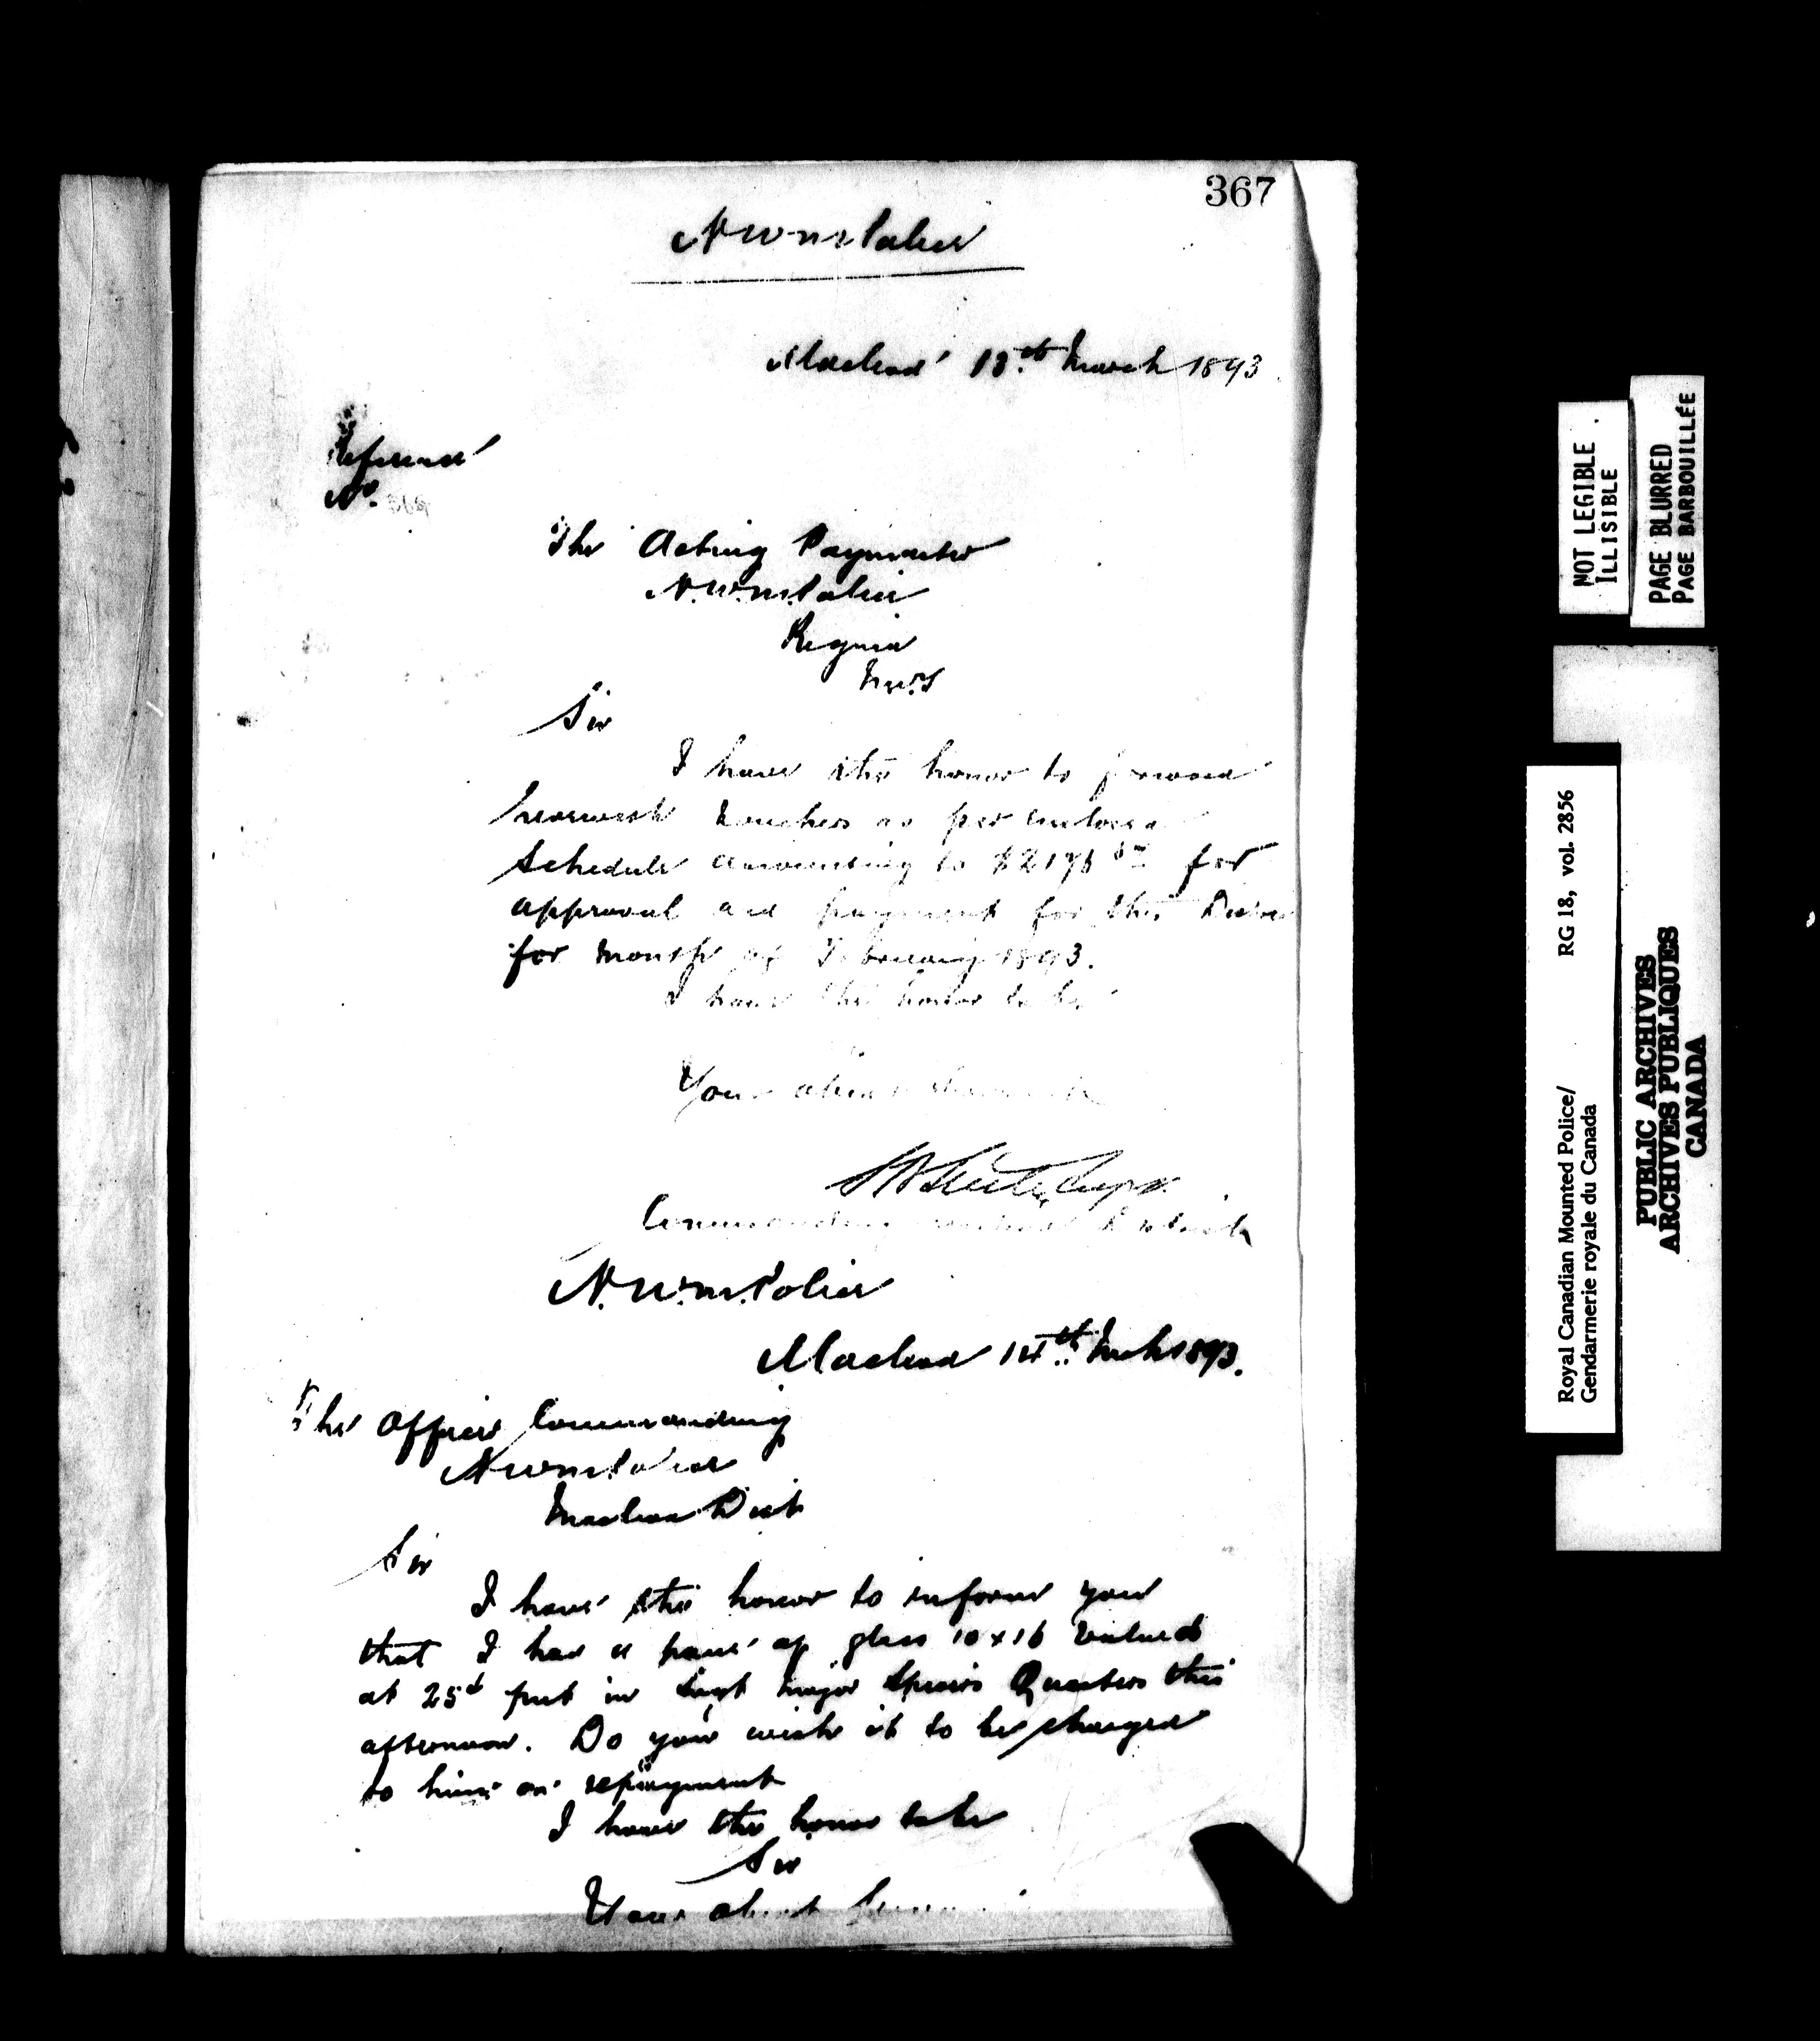 367
N W M Police
Macleod 13th March 1893
Reference
No.
The Acting Paymaster
N.W.M. Police
Regina
N.W.T
Sir
I have the honor to forward
herewith vouchers as per enclosed
schedule amounting to for
approval and payment for this
for month of February 1893.
I have the honor to be
Your obedient servant
Supt.
Commanding Macleod District
N.W.M. Police
Macleod 14th Mch 1893.
The Officer Commanding
N W M Police
Macleod Dist
Sir
I have the honor to inform you
that I had a pane of glass 10 x 16 valued
at 25c put in Sergt Major Quarters this
afternoon. Do you wish it to be charged
to him on repayment
I have the honor to be
Sir
Your obedt Servant
NOT LEGIBLE
ILLISIBLE
PAGE BLURRED
PAGE BARBOUILLÉE
Royal Canadian Mounted Police/ RG 18, vol. 2856
Gendarmerie royale du Canada
PUBLIC ARCHIVES
ARCHIVES PUBLIQUES
CANADA